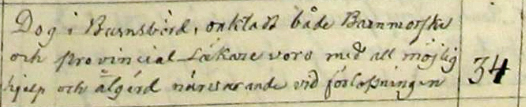 Dog i Barnsbörd, oaktadt både Barnmorska
och Provincial Läkare voro med all möjlig
hjelp och åtgärd närvarande vid förlossningen 34